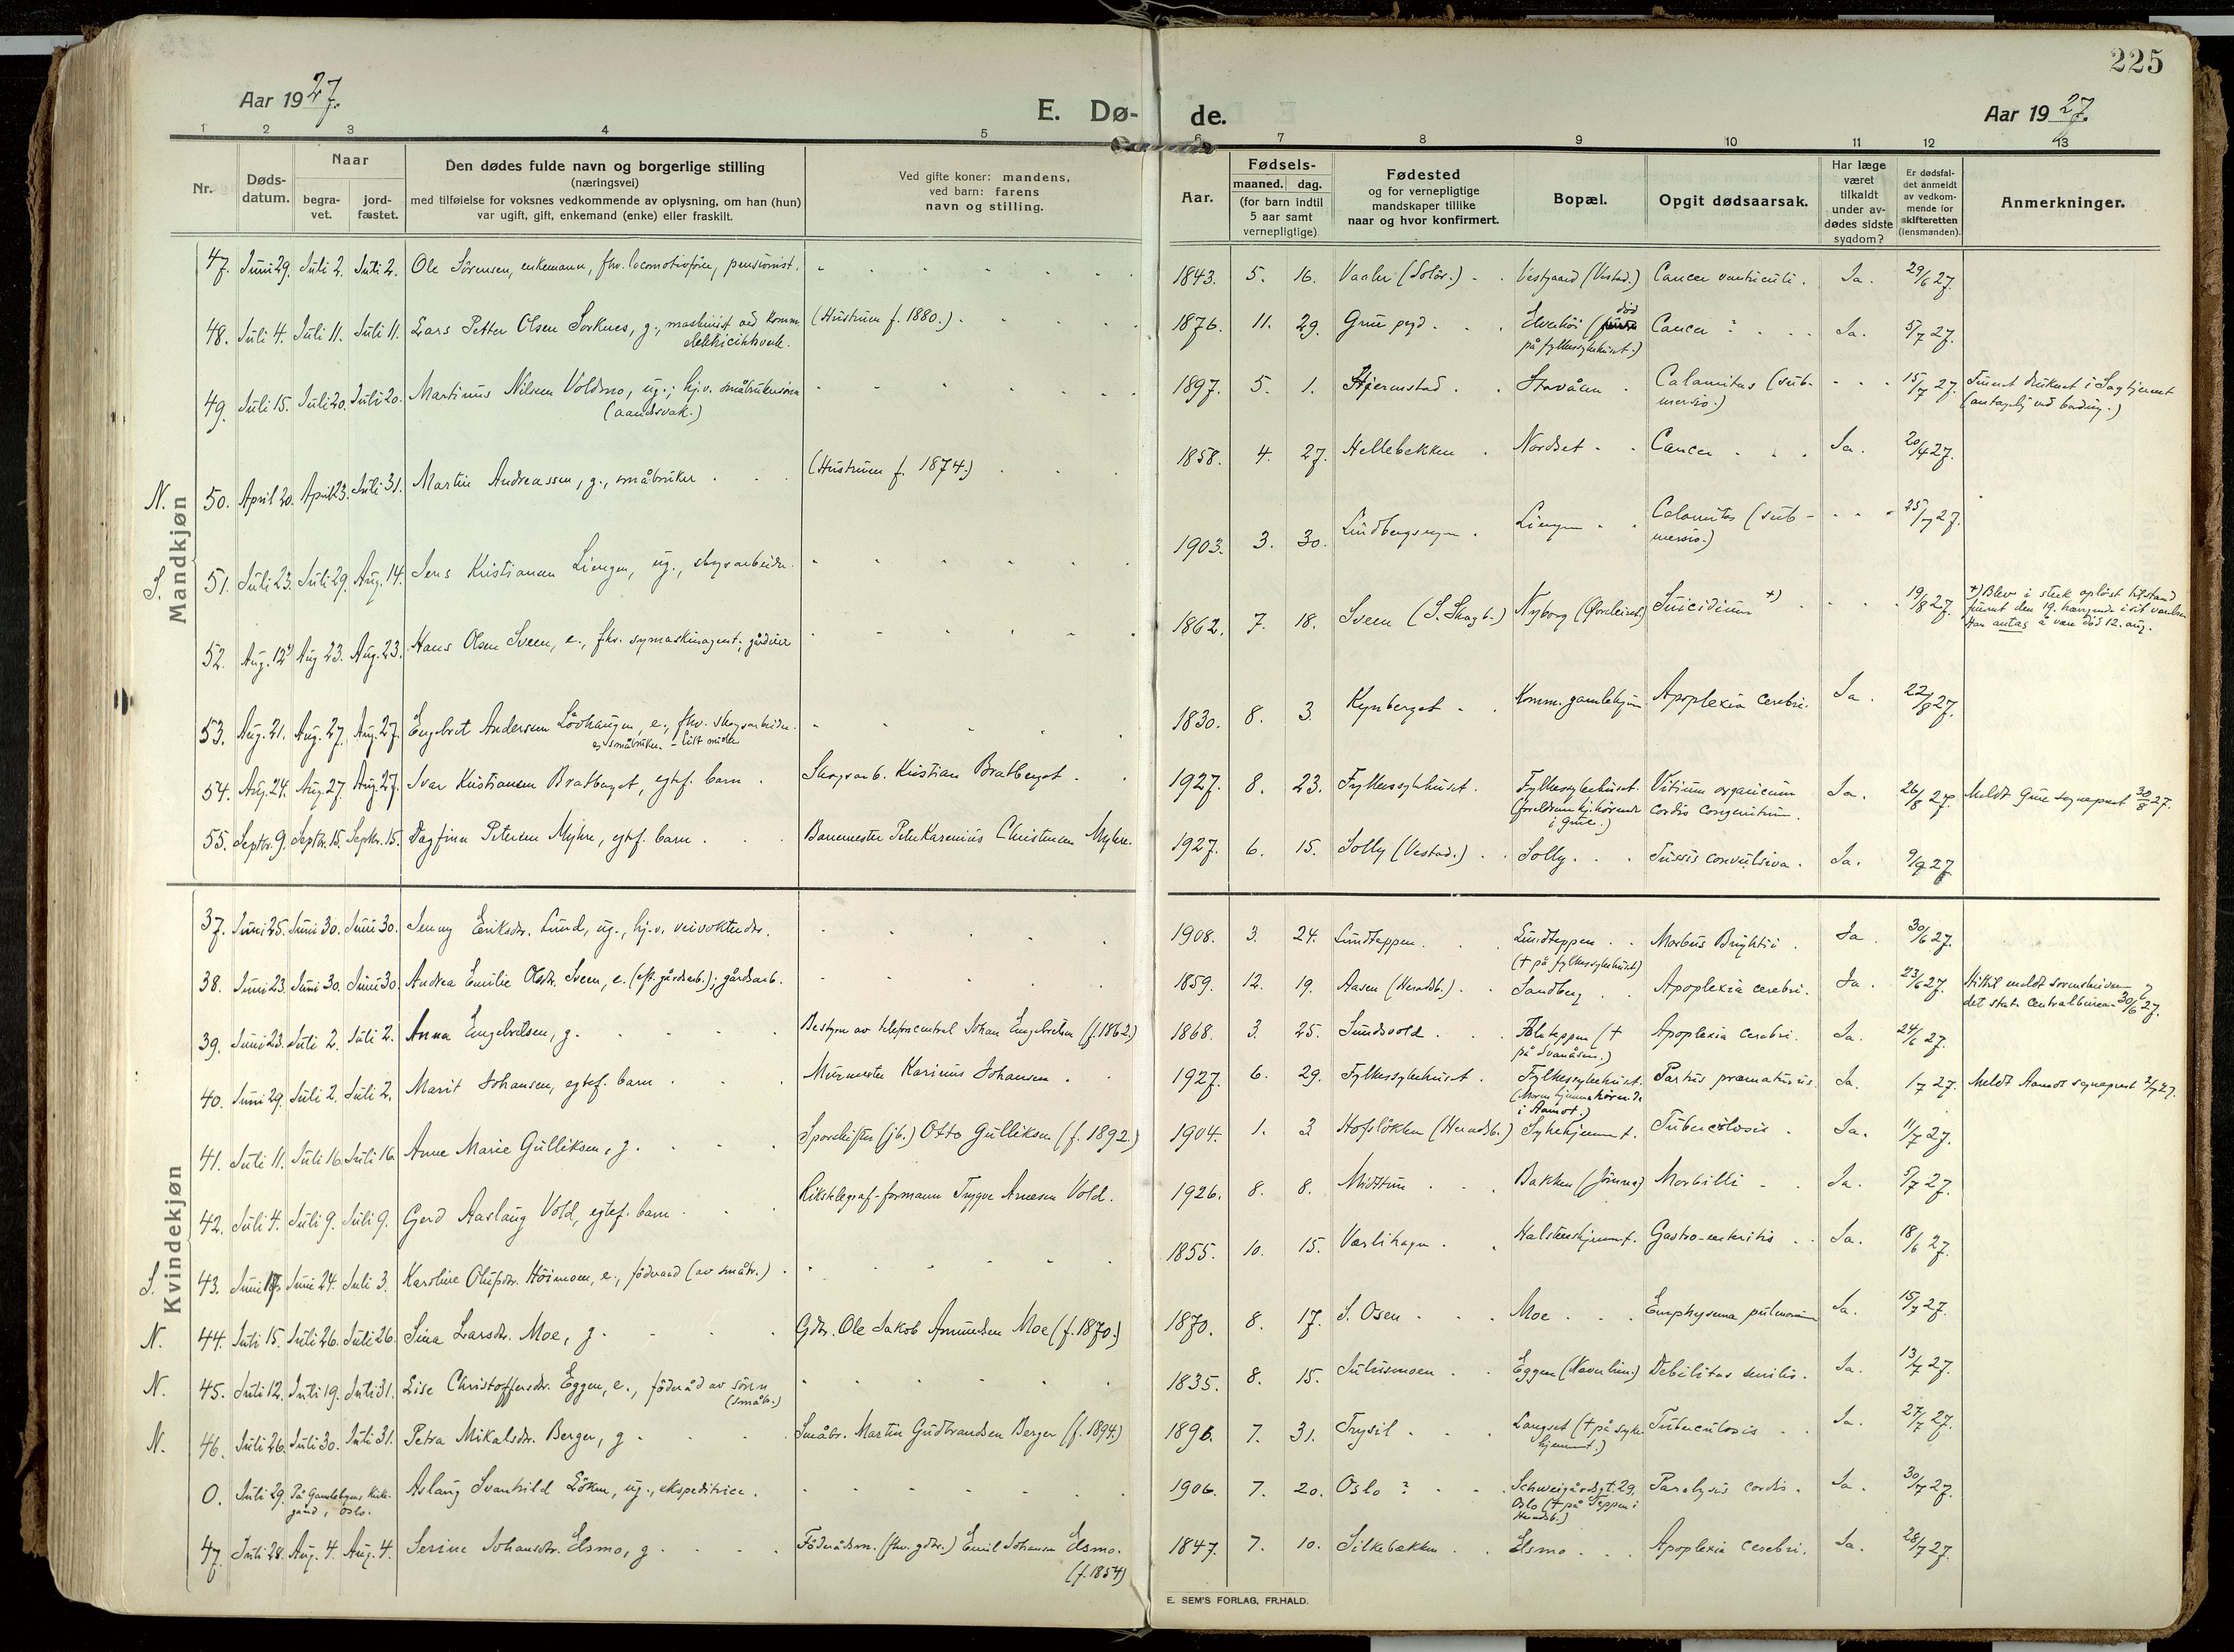 225
Aar 1927.
E. Dø-
de.
Aar 1927.
1 2 3 4 5 6 7 8 9 10 11 12 13
Nr.
Døds-
datum.
Naar
begra-
vet.
jord-
fæstet.
Den dødes fulde navn og borgerlige stilling
(næringsvei)
med tilføielse for voksnes vedkommende av oplysning, om han (hun)
var ugift, gift, enkemand (enke) eller fraskilt.
Ved gifte koner: mandens,
ved barn: farens
navn og stilling.
Aar.
Fødsels-
maaned. dag.
(for barn indtil
5 aar samt
vernepligtige)
Fødested
og for vernepligtige
mandskaper tillike
naar og hvor konfirmert.
Bopæl.
Opgit dødsaarsak.
Har læge
været
tilkaldt
under av-
dødes sidste
sygdom?
Er dødsfal-
det anmeldt
av vedkom-
mende for
skifteretten
(lensmanden).
Anmerkninger.
Mandkjøn
47. Juni 29. Juli 2. Juli 2. Ole Sørensen, enkemann, fhv. locomotivfører, pensionist. 1843. 5. 16. Vaaler (Solør.) Vestgaard (Vestad.) Cancer ventriculi. Ja. 29/6 27.
48. Juli 4. Juli 11. Juli 11. Lars Petter Olsen Sorknes, g., maskinist ved komm. elektricitetsverk. (Hustruen f. 1880.) 1876. 11. 29. Grue pgd. Elverhöi (død
på fylkessykehuset.) Cancer ? Ja. 5/7 27.
49. Juli 15. Juli 20. Juli 20. Martinus Nilsen Voldmo, ug.; hj.v. småbrukersönn
(aandsvak.) 1897. 5. 1. Hjermstad. Stavåsen Calamitas (sub-
mersio.) 15/7 27. Funnet druknet i Sagtjernet
(antagelig ved bading.)
N. 50. April 20. April 23. Juli 31. Martin Andreassen, g., småbruker (Hustruen f. 1874.) 1858. 4. 27. Hellebekken Nordset Cancer Ja. 20/4 27.
S. 51. Juli 23. Juli 29. Aug. 14. Jens Kristiansen Liengen, ug., skogsarbeider. 1903. 3. 30. Lindbergsengen. Liengen Calamitas (sub-
mersio.) 25/7 27.
52. Aug. 12? Aug 23. Aug. 23. Hans Olsen Sveen, e., fhv. symaskinagent; gårdeier 1862. 7. 18. Sveen (S. Skagb.) Nyborg Suicidium +) 19/8 27. +) Blev i sterk opløst tilstand
funnet den 19. hængende i sit
Han antas å være død 12. aug.
53. Aug. 21. Aug. 27. Aug. 27. Engebret Andersen Lövhaugen, e., fhv. skogsarbeider
og småbruker 1830. 8. 3. Kynberget Komm. gamlehjem Apoplexia cerebri. Ja. 22/8 27.
54. Aug. 24. Aug. 27. Aug. 27. Ivar Kristiansen Bratberget, egtef. barn. Skogsarb. Kristian Bratberget. 1927. 8. 23. Fylkessykehuset. Fylkessykehuset.
(foreldrene hj.hørende
i Grue.) Vitium organicum
cordis congenitum. Ja. 26/8 27. Meldt Grue sogneprest 30/8 27.
55. Septbr. 9. Septbr. 15. Septbr. 15. Dagfinn Petersen Myhre, egtef. barn. Banemester Peter Karenius Christensen Myhre. 1927. 6. 15. Solly (Vestad.) Solly. Tussis convulsiva. Ja. 9/9 27
Kvindekjøn
37. Juni 25. Juni 30. Juni 30. Jenny Eriksdr. Lund, ug., hj.v. veivokterdtr. 1908. 3. 24. Lundteppen. Lundteppen
(+ på fylkessykehuset) Morbus Brightii. Ja. 30/6 27.
38. Juni 23. Juni 30. Juni 30. Andrea Emilie Olsdr. Sveen, e. (eft. gårdsarb.); gårdsarb. 1859. 12. 19. Aasen (Heradsb.) Sandberg Apoplexia cerebri. Ja. 23/6 27. Attest meldt sorenskriveren
det stat. Centralbureau 30/6 27.
39. Juni 23. Juli 2. Juli 2. Anna Engebretsen, g. Bestyrer av telefoncentral Johan Engebretsen (f. 1862.) 1868. 3. 25. Sundsvold (+
på Svanåsen.) Apoplexia cerebri. Ja. 24/6 27.
40. Juni 29. Juli 2. Juli 2. Marit Johansen, egtef. barn Murmester Karinius Johansen 1927. 6. 29. Fylkessykehuset. Fylkessykehuset.
(Moren hjemmehörende
i Aamot.) Partus præmaturus Ja. 1/7 27. Meldt Aamot sogneprest 2/7 27.
41. Juli 11. Juli 16. Juli 16. Anne Marie Gulliksen, g. Sporskifter (jb.) Otto Gulliksen (f. 1892.) 1904. 1. 3 Hofslökken (Heradsb.) Sykehjemmet. Tuberculosis. Ja. 11/7 27.
42. Juli 4. Juli 9. Juli 9. Gerd Aaslaug Vold, egtef. barn Rikstelegraf-formann Trygve Arnesen Vold. 1926. 8. 8. Midttun Bakken (Jömna) Morbilli Ja. 5/7 27.
S. 43. Juni 17 Juni 24. Juli 3. Karoline Olufsdr. Höimoen, e., föderaad (av småbr.) 1855. 10. 15. Værlihagen. Halsteenshjemmet. Gastro-enteritis Ja. 18/6 27.
N. 44. Juli 15. Juli 26. Juli 26. Sina Larsdr. Moe, g. Gdbr. Ole Jakob Amundsen Moe (f. 1870.) 1870. 8. 17. S. Osen Moe Emphysema pulmonum Ja. 15/7 27.
N. 45. Juli 12. Juli 19. Juli 31. Lise Christoffersdr. Eggen, e., föderåd av sönn
(småb.) 1835. 8. 15. Julusmoen Eggen Debilitas senilis. Ja. 13/7 27.
N. 46. Juli 26. Juli 30. Juli 31. Petra Mikalsdr. Berger, g Småbr. Martin Gudbrandsen Berger (f. 1894.) 1896. 7. 31. Trysil Langset (+ på syke-
hjemmet.) Tuberculosis Ja. 27/7 27.
0. Juli 29. På Gamlebyens kirke-
gård, Oslo. Aslaug Svanhild Löken, ug., ekspeditrice. 1906. 7. 20. Oslo ? Schweigårdsgt. 29.
Oslo (+ på Teppen i
Heradsb.) Paralysis cordis. Ja. 30/7 27.
47. Juli 28. Aug. 4. Aug. 4. Serine Johansdtr. Elsmo, g Föderådsm. (fhv. gdbr.) Emil Johansen Elsmo.
(f. 1854) 1847. 7. 10. Silkebækken Elsmo Apoplexia cerebri. Ja. 28/7 27.
E. SEM'S FORLAG, FR.HALD.